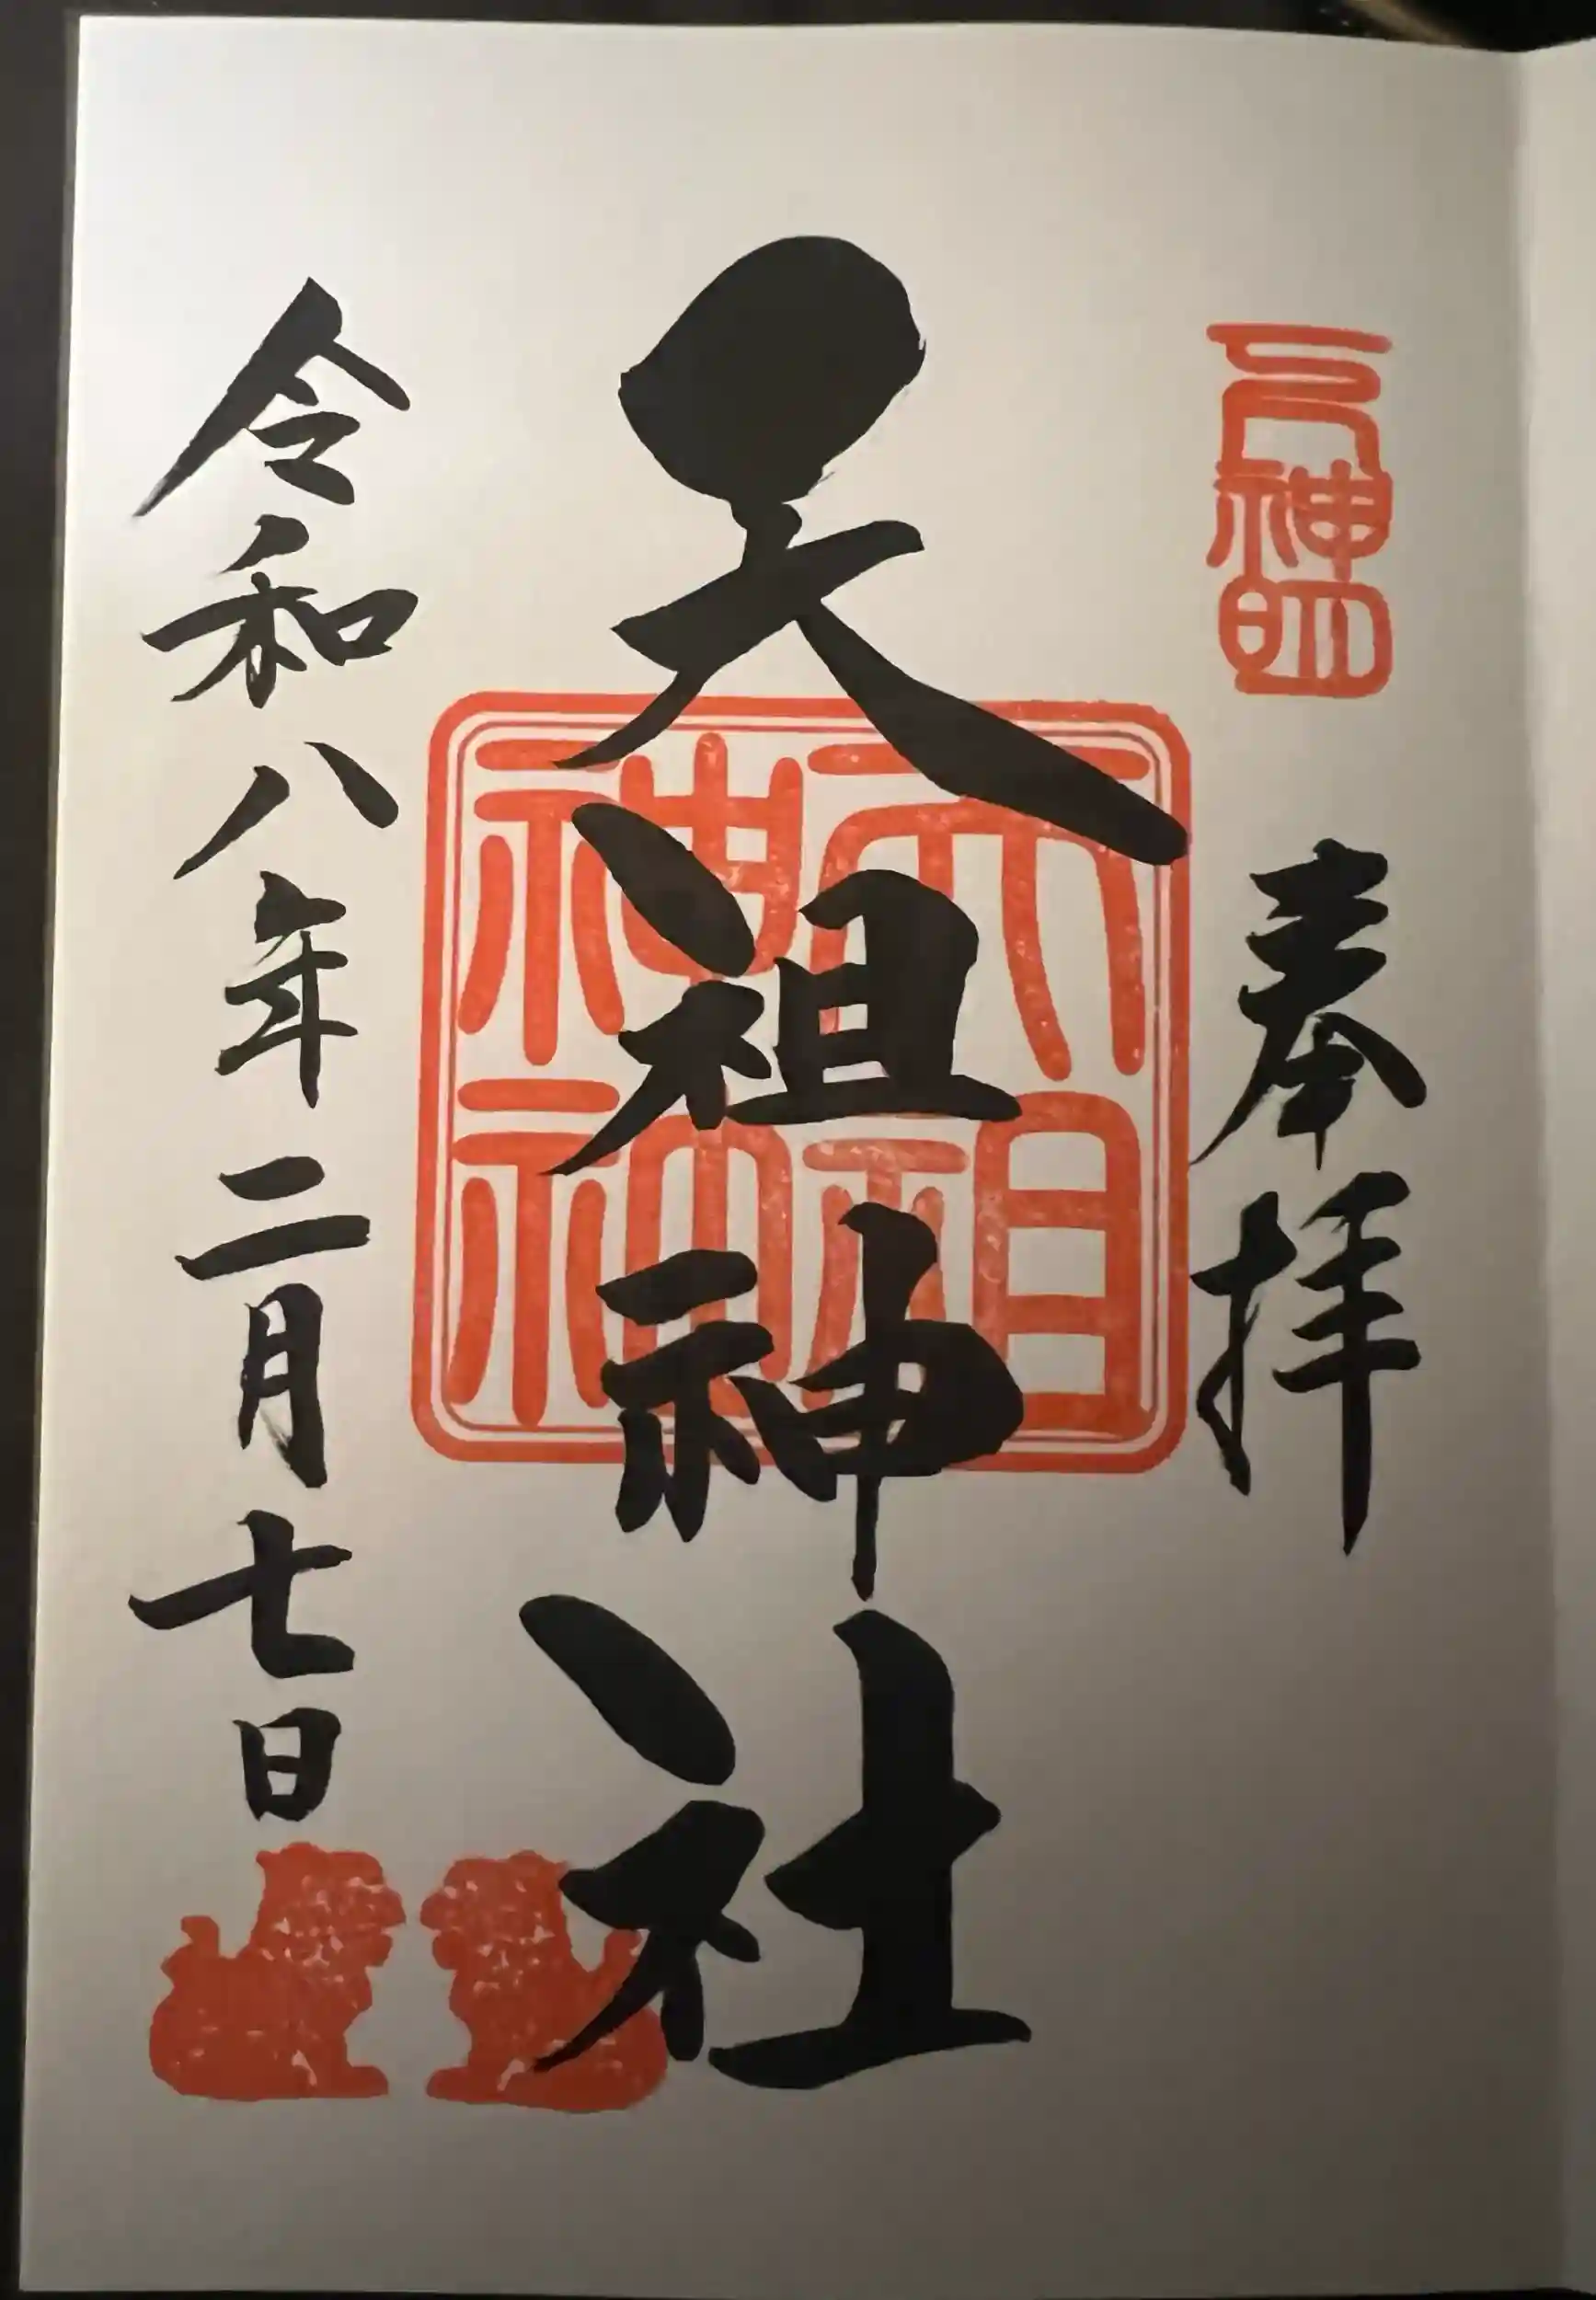 奉拝
天祖神社
天祖
神社
令和八年二月七日